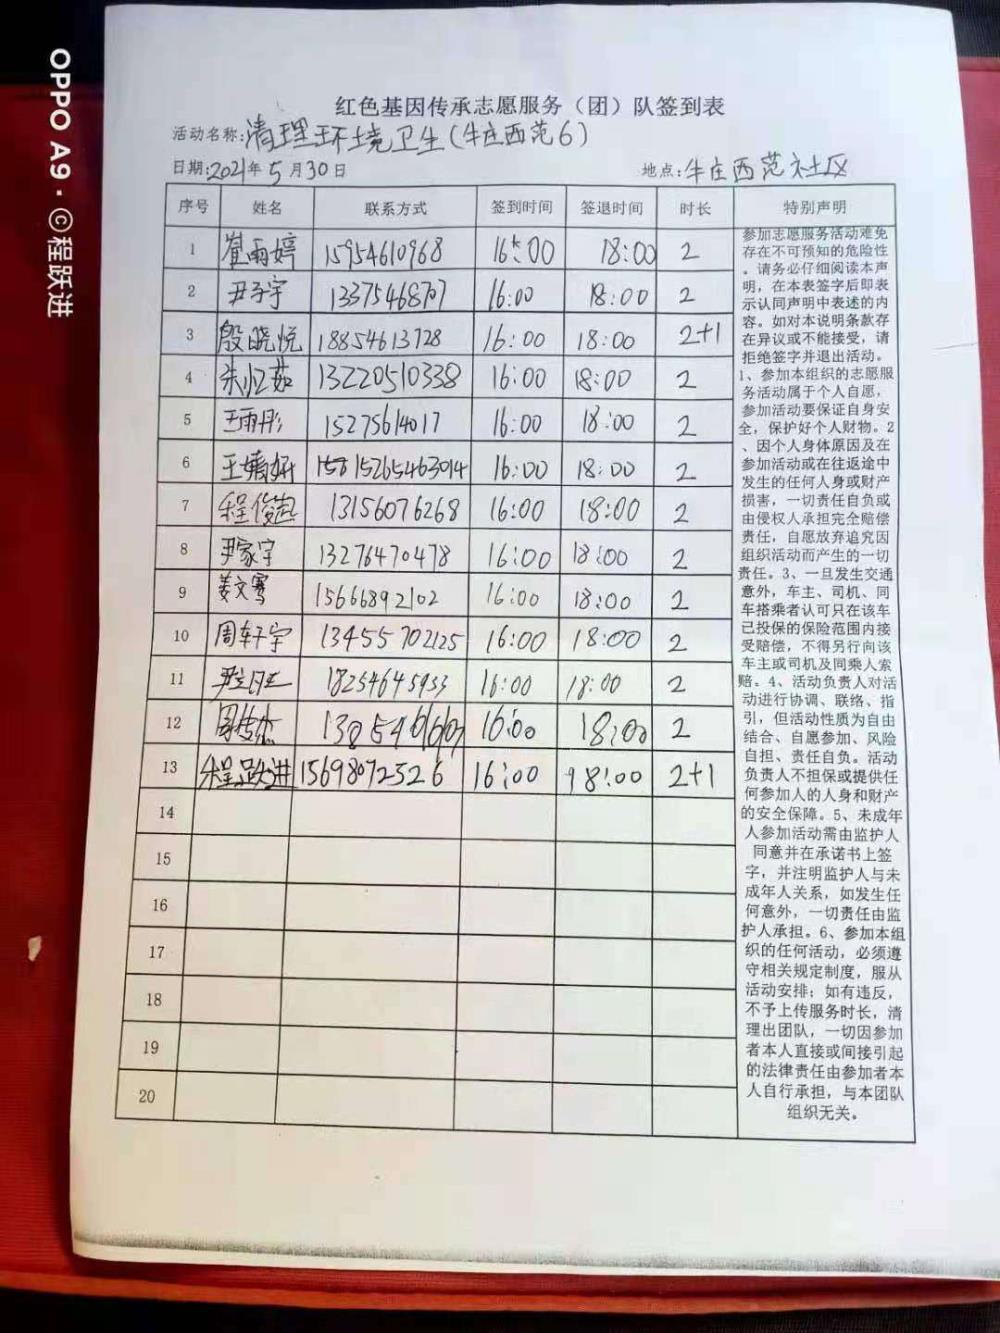 OPPO A9 · ©程跃进
红色基因传承志愿服务（团）队签到表
活动名称:清理环境卫生(牛庄西范6)
日期:2021年5月30日 地点:牛庄西范社区
序号 姓名 联系方式 签到时间 签退时间 时长 特别声明
1 崔雨婷 15954610968 16:00 18:00 2
2 尹子宇 13375468707 16:00 18:00 2
3 殷晓悦 18854613728 16:00 18:00 2+1
4 13220510338 16:00 18:00 2
5 王雨彤 15275614017 16:00 18:00 2
6 王婧妍 16:00 18:00 2
7 程俊起 13156076268 16:00 18:00 2
8 尹家宇 13276470478 16:00 18:00 2
9 姜文骞 15666892102 16:00 18:00 2
10 周轩宇 13455702125 16:00 18:00 2
11 18254645953 16:00 18:00 2
12 周俊杰 16:00 18:00 2
13 程跃进 15698072526 16:00 18:00 2+1
14
15
16
17
18
19
20
参加志愿服务活动难免
存在不可预知的危险性
。请务必仔细阅读本声
明，在本表签字后即表
示认同声明中表述的内
容。如对本说明条款存
在异议或不能接受，请
拒绝签字并退出活动。
1、参加本组织的志愿服
务活动属于个人自愿，
参加活动要保证自身安
全，保护好个人财物。2
、因个人身体原因及在
参加活动或在往返途中
发生的任何人身或财产
损害，一切责任自负或
由侵权人承担完全赔偿
责任，自愿放弃追究因
组织活动而产生的一切
责任。3、一旦发生交通
意外，车主、司机、同
车搭乘者认可只在该车
已投保的保险范围内接
受赔偿，不得另行向该
车主或司机及同乘人索
赔。4、活动负责人对活
动进行协调、联络、指
引，但活动性质为自由
结合、自愿参加、风险
自担、责任自负。活动
负责人不担保或提供任
何参加人的人身和财产
的安全保障。5、未成年
人参加活动需由监护人
同意并在承诺书上签
字，并注明监护人与未
成年人关系，如发生任
何意外，一切责任由监
护人承担。6、参加本组
织的任何活动，必须遵
守相关规定制度，服从
活动安排；如有违反，
不予上传服务时长，清
理出团队，一切因参加
者本人直接或间接引起
的法律责任由参加者本
人自行承担，与本团队
组织无关。